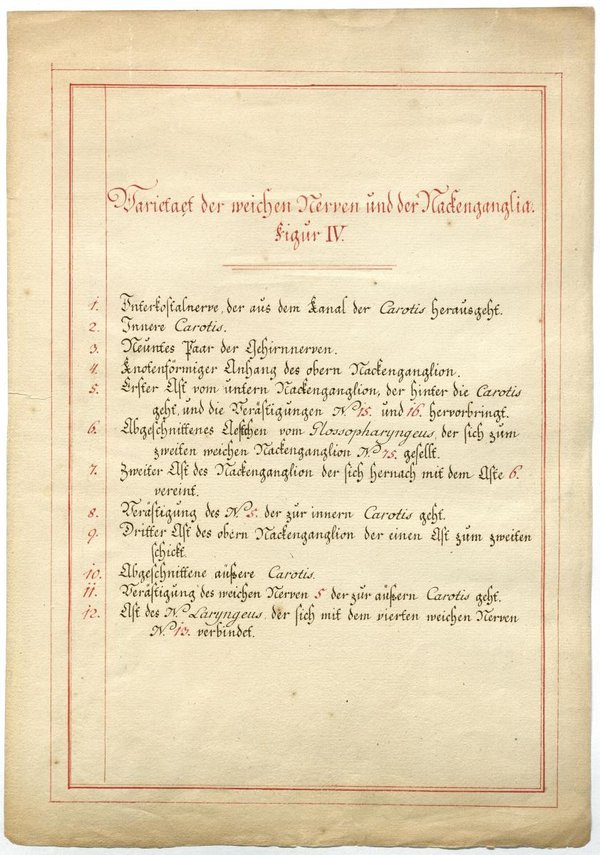 Varietaet der weichen Nerven und der Nackenganglia.
Figur IV.
1. Interkostalnerve, der aus dem Kanal der Carotis herausgeht.
2. Innere Carotis.
3. Neuntes Paar der Gehirnnerven.
4. Knotenförmiger Anhang des obern Nackenganglion.
5. Erster Ast vom untern Nackenganglion, der hinter die Carotis
geht, und die Verästigungen No 15. und 16. hervorbringt.
6. Abgeschnittenes Aestchen vom Glossopharyngeus, der sich zum
zweiten weichen Nackenganglion No 75. gesellt.
7. Zweiter Ast des Nackenganglion der sich hernach mit dem Aste 6.
vereint.
8. Verästigung des No 5. der zur innern Carotis geht.
9. Dritter Ast des obern Nackenganglion der einen Ast zum zweiten
schickt.
10. Abgeschnittene äußere Carotis.
11. Verästigung des weichen Nerven 5 der zur äußern Carotis geht.
12. Ast des N. Laryngeus, der sich mit dem vierten weichen Nerven
No 13. verbindet.